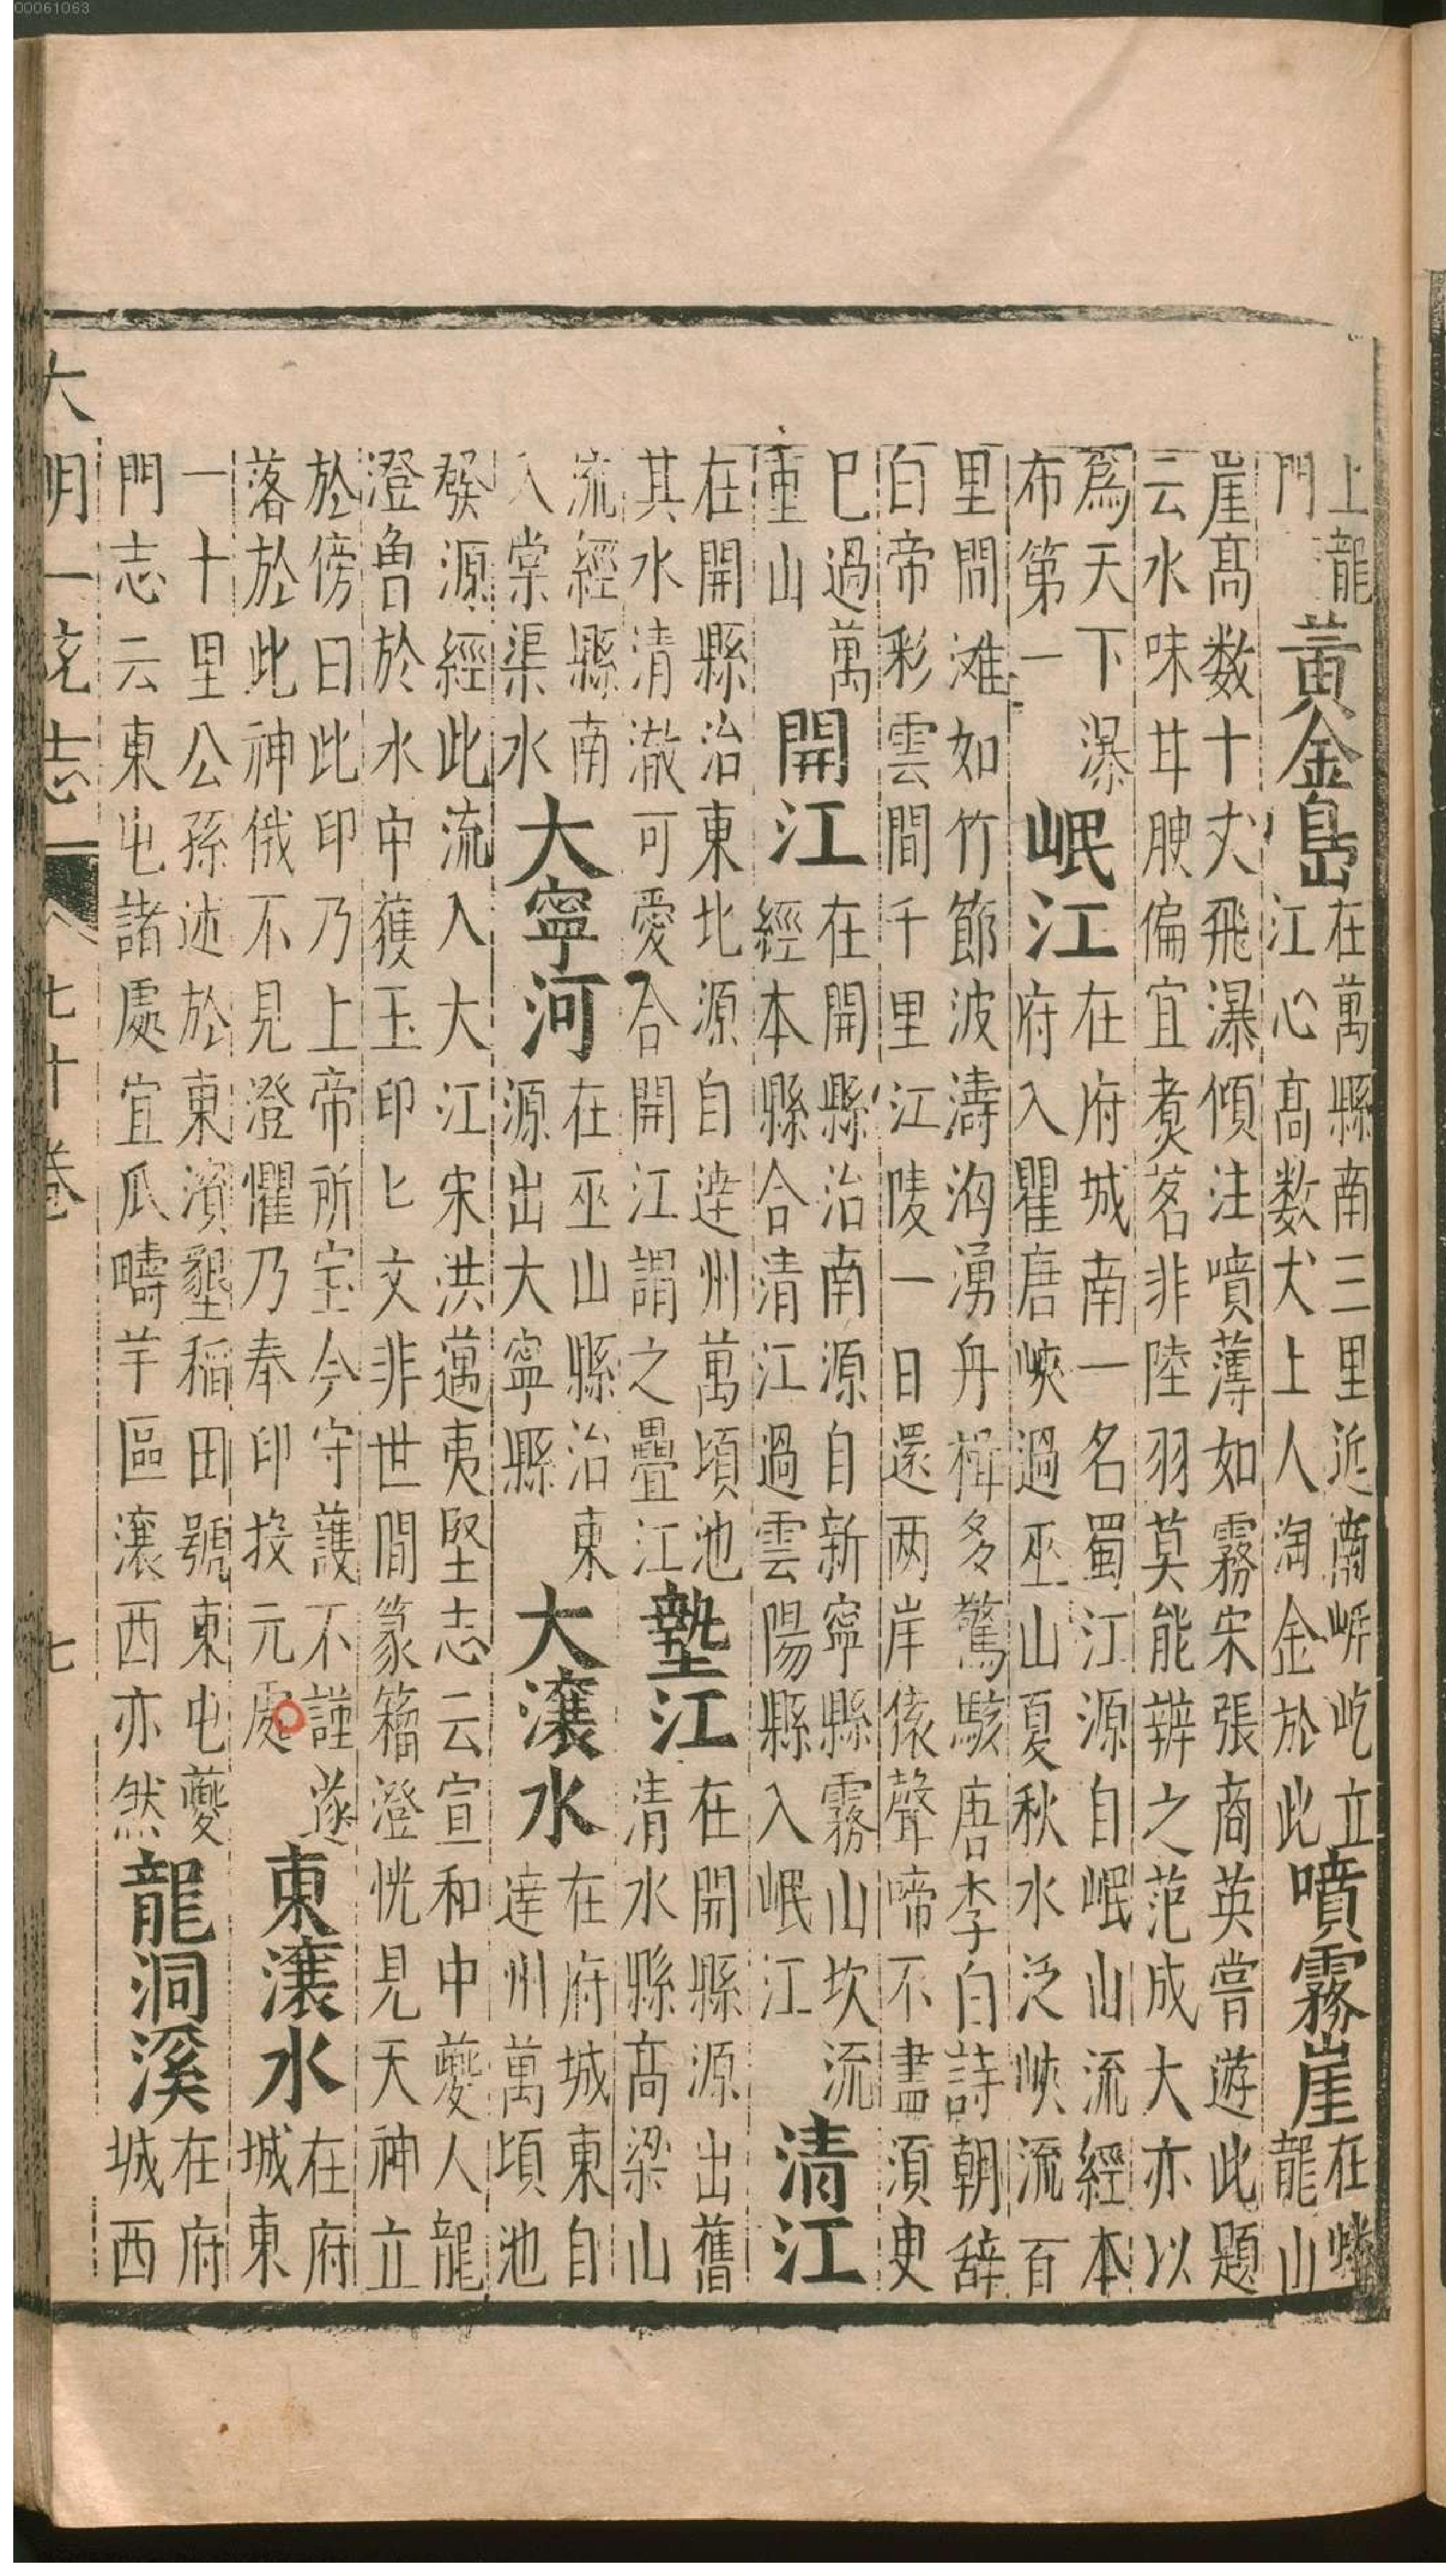 上龍
門
黃金島
在萬縣南三里近蘭㟁屹立
江心高数丈上人淘金於此
噴霧崖
在蟠
龍山
崖高数十丈飛瀑傾注噴薄如霧宋張商英嘗遊此題
云水味甘腴偏宜煮茗非陸羽莫能辨之范成大亦以
爲天下瀑
布第一
岷江
在府城南一名蜀江源自岷山流經本
府入瞿唐峽過巫山夏秋水泛峽流百
里間滩如竹節波濤洶湧舟楫多驚駭唐李白詩朝辞
白帝彩雲間千里江陵一日還两岸猿聲啼不盡須史
已過萬
重山
開江
在開縣治南源自新寧縣霧山坎流
經本縣合清江過雲陽縣入岷江
清江
在開縣治東北源自達州萬頃池
其水清澈可愛合開江謂之疊江
墊江
在開縣源出舊
清水縣高梁山
流經縣南
入棠渠水
大寧河
在巫山縣治東
源出大寧縣
大瀼水
在府城東自
達州萬頃池
發源經此流入大江宋洪邁夷堅志云宣和中夔人龍
澄魯於水中獲玉印匕文非世間篆籀澄恍見天神立
於傍曰此印乃上帝所宝今守護不謹遂
落於此神俄不見澄懼乃奉印投元處
東瀼水
在府
城東
一十里公孫述於東濱墾稻田號東屯夔
門志云東屯諸處宜瓜疇芋區瀼西亦然
龍洞溪
在府
城西
大明一统志 七十卷 七
00061063